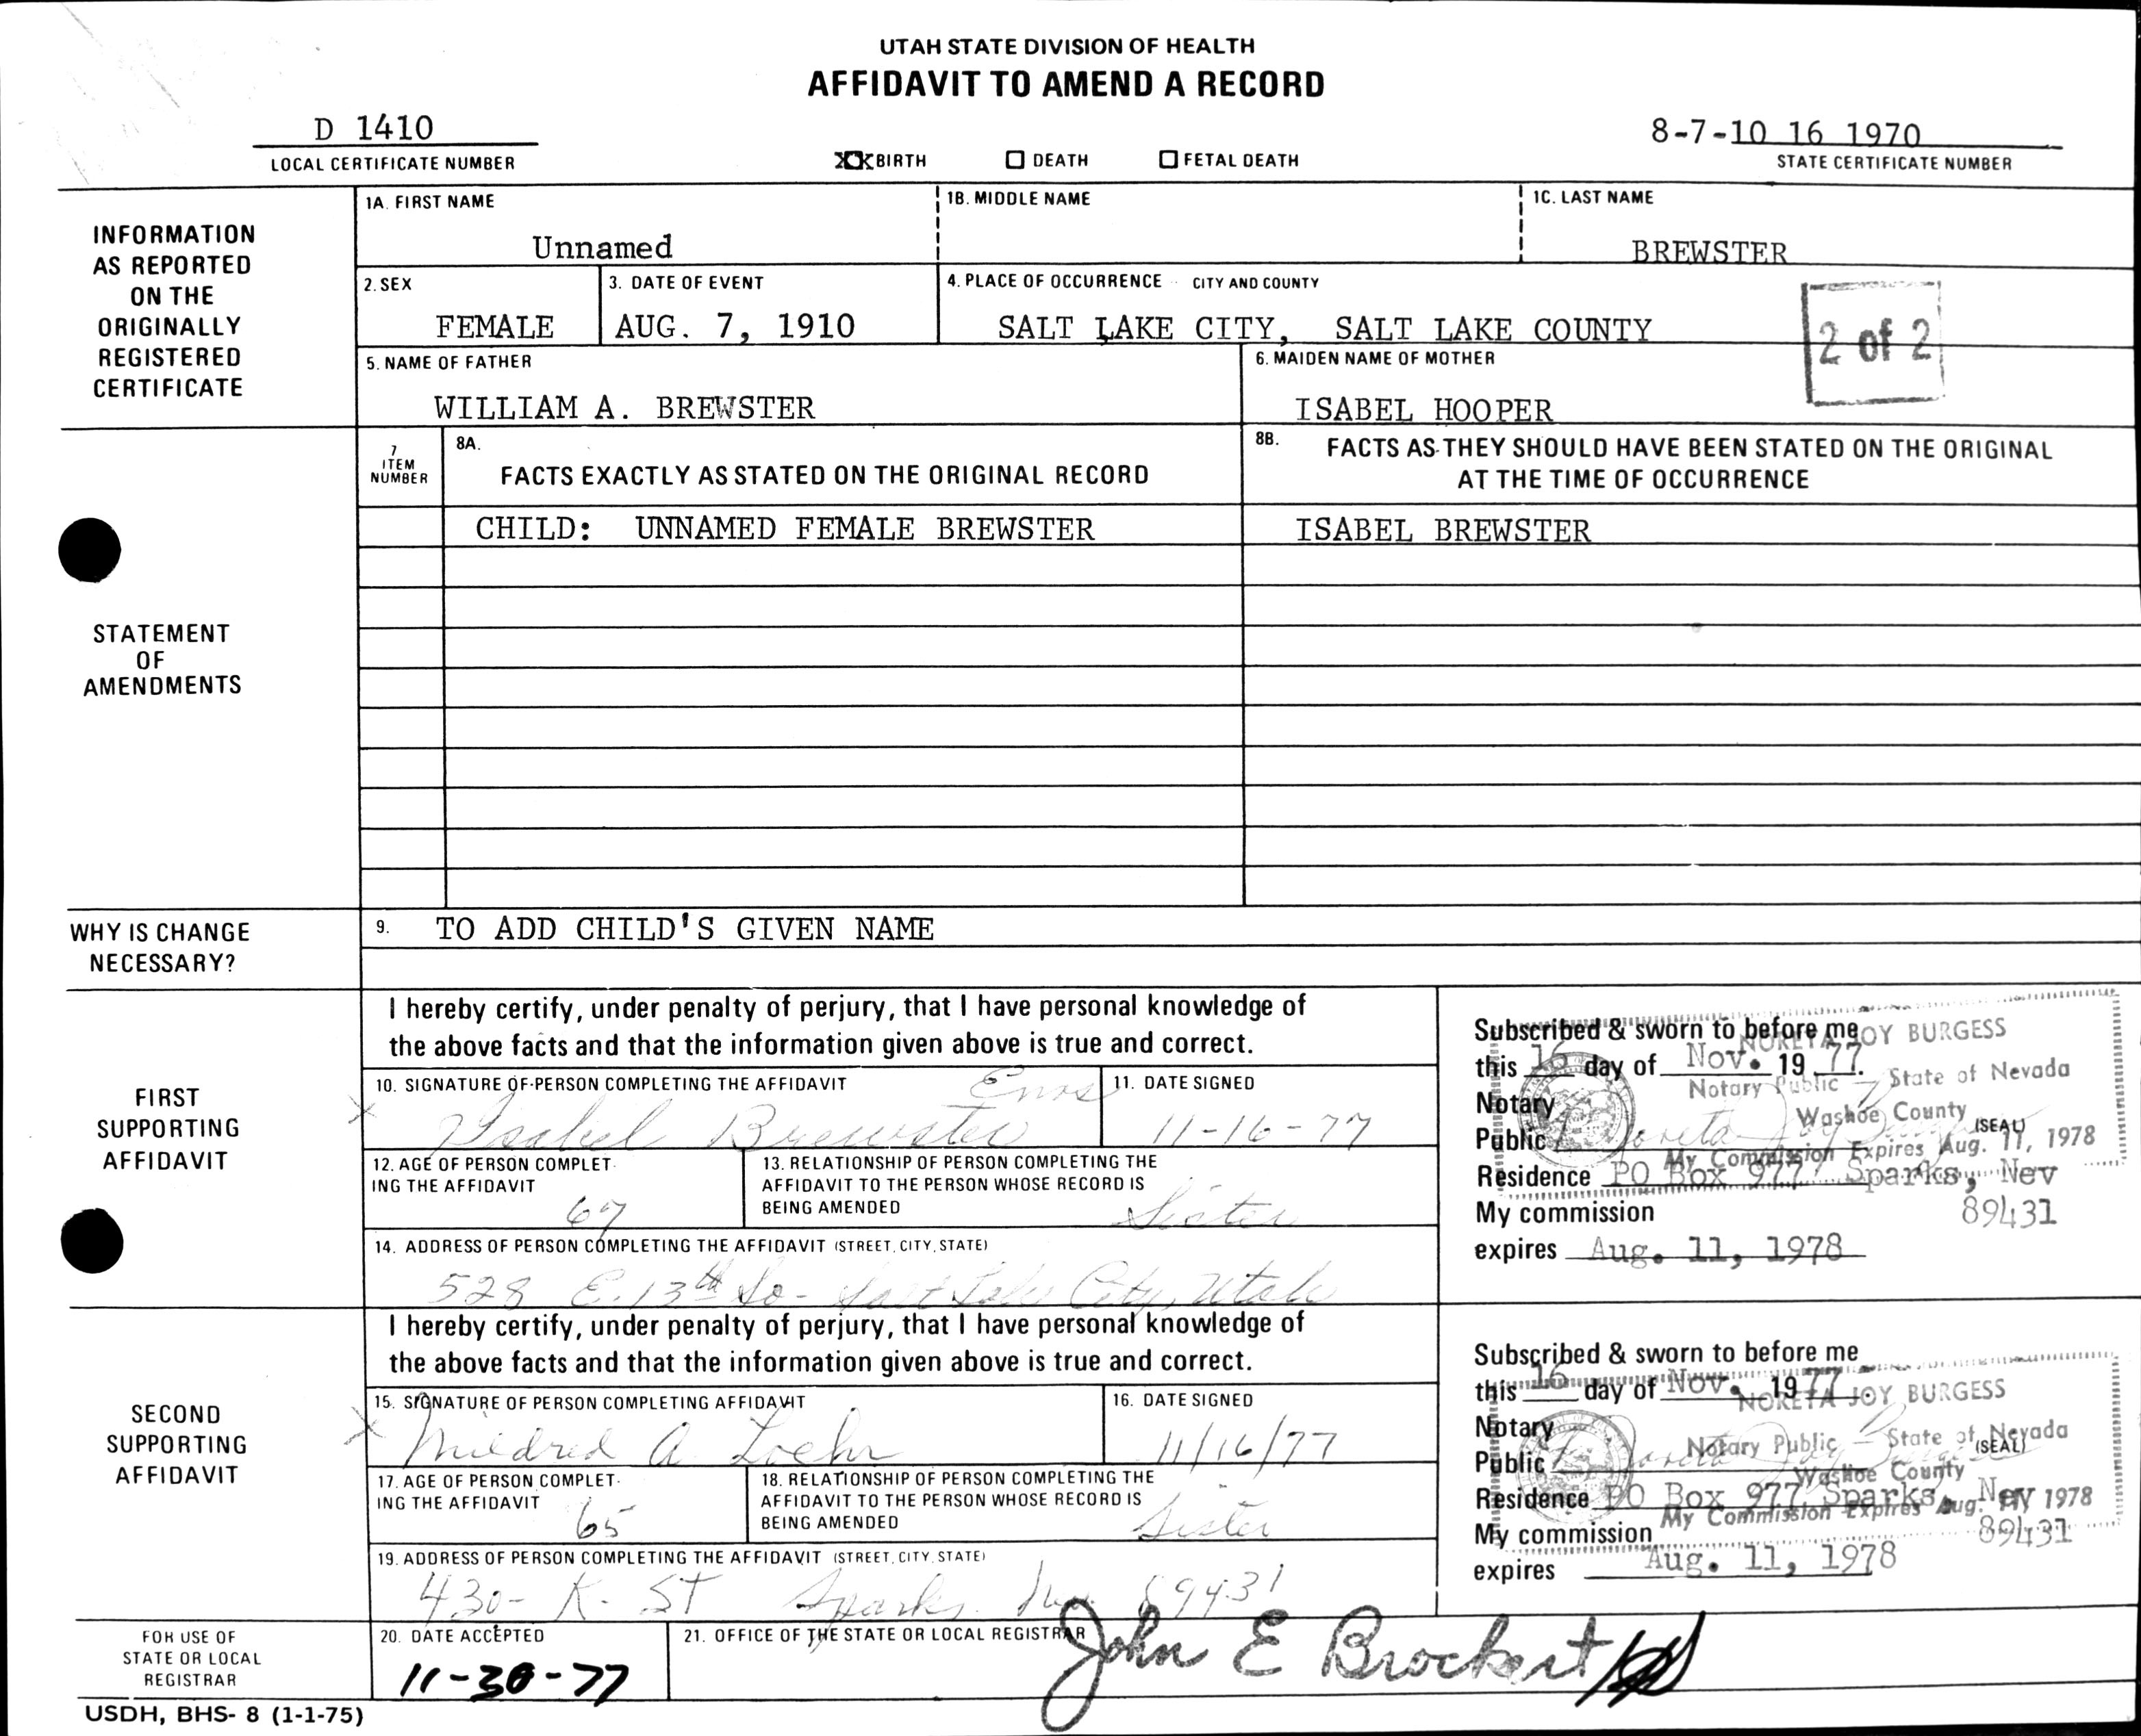 UTAH STATE DIVISION OF HEALTH
AFFIDAVIT TO AMEND A RECORD
D 1410
8-7-10 16 1970
LOCAL CERTIFICATE NUMBER
XX BIRTH
DEATH
FETAL DEATH
STATE CERTIFICATE NUMBER
INFORMATION
AS REPORTED
ON THE
ORIGINALLY
REGISTERED
CERTIFICATE
1A. FIRST NAME
Unnamed
1B. MIDDLE NAME
1C. LAST NAME
BREWSTER
2. SEX
FEMALE
3. DATE OF EVENT
AUG. 7, 1910
4. PLACE OF OCCURRENCE CITY AND COUNTY
SALT LAKE CITY, SALT LAKE COUNTY
2 of 2
5. NAME OF FATHER
WILLIAM A. BREWSTER
6. MAIDEN NAME OF MOTHER
ISABEL HOOPER
STATEMENT
OF
AMENDMENTS
7
ITEM
NUMBER
8A.
FACTS EXACTLY AS STATED ON THE ORIGINAL RECORD
8B.
FACTS AS THEY SHOULD HAVE BEEN STATED ON THE ORIGINAL
AT THE TIME OF OCCURRENCE
CHILD: UNNAMED FEMALE BREWSTER
ISABEL BREWSTER
WHY IS CHANGE
NECESSARY?
9. TO ADD CHILD'S GIVEN NAME
FIRST
SUPPORTING
AFFIDAVIT
I hereby certify, under penalty of perjury, that I have personal knowledge of
the above facts and that the information given above is true and correct.
10. SIGNATURE OF PERSON COMPLETING THE AFFIDAVIT
X Isabel Brewster Enos
11. DATE SIGNED
11-16-77
12. AGE OF PERSON COMPLET-
ING THE AFFIDAVIT
67
13. RELATIONSHIP OF PERSON COMPLETING THE
AFFIDAVIT TO THE PERSON WHOSE RECORD IS
BEING AMENDED
Sister
14. ADDRESS OF PERSON COMPLETING THE AFFIDAVIT (STREET, CITY, STATE)
528 E. 13th So- Salt Lake City, Utah
Subscribed & sworn to before me
this 16 day of Nov. 1977.
Notary
Public Noreta Joy Burgess (SEAL)
Residence PO Box 977 Sparks, Nev
89431
My commission
expires Aug. 11, 1978
NORETA JOY BURGESS
Notary Public — State of Nevada
Washoe County
My Commission Expires Aug. 11, 1978
SECOND
SUPPORTING
AFFIDAVIT
I hereby certify, under penalty of perjury, that I have personal knowledge of
the above facts and that the information given above is true and correct.
15. SIGNATURE OF PERSON COMPLETING AFFIDAVIT
X Mildred A Loehr
16. DATE SIGNED
11/16/77
17. AGE OF PERSON COMPLET-
ING THE AFFIDAVIT
65
18. RELATIONSHIP OF PERSON COMPLETING THE
AFFIDAVIT TO THE PERSON WHOSE RECORD IS
BEING AMENDED
Sister
19. ADDRESS OF PERSON COMPLETING THE AFFIDAVIT (STREET, CITY, STATE)
430- K. ST Sparks. Nev 89431
Subscribed & sworn to before me
this 16 day of Nov. 1977.
Notary
Public Noreta Joy Burgess (SEAL)
Residence PO Box 977 Sparks, Nev
89431
My commission
expires Aug. 11, 1978
NORETA JOY BURGESS
Notary Public — State of Nevada
Washoe County
My Commission Expires Aug. 11, 1978
FOR USE OF
STATE OR LOCAL
REGISTRAR
20. DATE ACCEPTED
11-30-77
21. OFFICE OF THE STATE OR LOCAL REGISTRAR
John E Brockert
USDH, BHS- 8 (1-1-75)